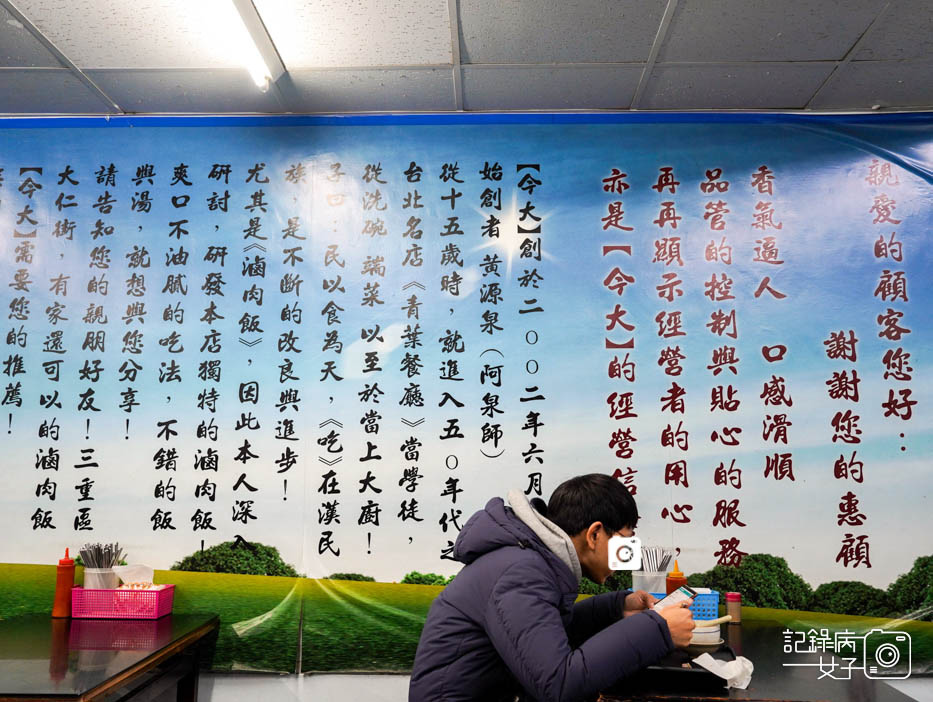 親愛的顧客您好：
謝謝您的惠顧
香氣逼人 口感滑順
品管的控制與貼心的服務
再再顯示經營者的用心，
亦是【今大】的經營信
【今大】創於二００二年六月
始創者 黃源泉（阿泉師）
從十五歲時，就進入五０年代之
台北名店《青葉餐廳》當學徒，
從洗碗 端菜 以至於當上大廚！
子曰：民以食為天，《吃》在漢民
族，是不斷的改良與進步！
尤其是《滷肉飯》，因此本人深入
研討，研發本店獨特的滷肉飯！
爽口不油膩的吃法，不錯的飯
與湯，就想與您分享！
請告知您的親朋好友！三重區
大仁街，有家還可以的滷肉飯
【今大】需要您的推薦！
記錄病
女子